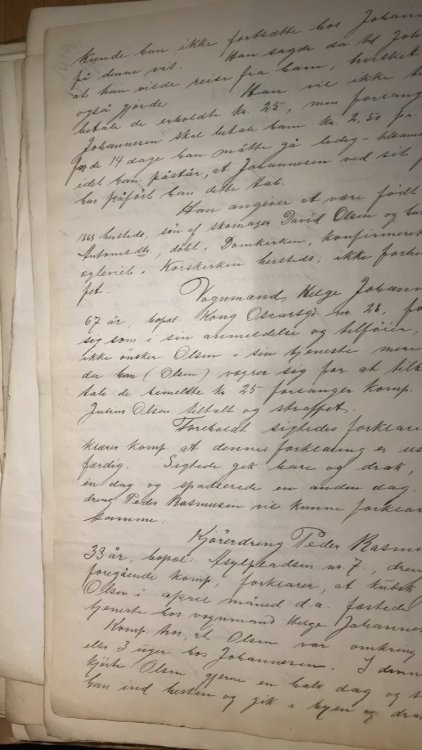 kunde han ikke fortsætte hos Johannes
på denne vis. Han sagde da til Joh
at han vilde reise fra ham, hvilket
også gjorde. Han vil ikke t
betale de erholdte kr. 25, men forlang
Johannesen skal betale ham kr. 2,50 pr
for de 14 dage han måtte gå ledig
idet han påstår, at Johannesen ved sit
har påført ham dette tab.
Han angiver at være født
1868 hersteds, søn af skomager David Olsen og
døbt i Domkirken, konfirmeret
i Korskirken hersteds; ikke
fet.
Vognmand, Helge Johann
67 år, bopæl: Kong Oscarsgd. nr. 28, f
sig som i sin anmeldelse og tilføier,
ikke ønsker Olsen i sin tjeneste mere
da han (Olsen) vægrer sig for at tilb
tale de bemeldte kr 25 forlanger komp.
Julius Olsen tiltalt og straffet.
Foreholdt sigtedes forklar
klærer komp. at dennes forklaring er
færdig. Sigtede gik bare og drak,
en dag og spadserede en anden dag.
dreng Peder Rasmusen vil kunne forklar
samme.
Kjøredreng Peder Rasm
33 år, bopæl: Asylpladsen nr 7, dren
foregående komp., forklarer, at kusk
Olsen i april måned d.a. fæstede
tjeneste hos vognmand Helge Johannes
Komp. tror, at Olsen var omkring
eller 3 uger hos Johannesen. I denn
kjørte Olsen gjerne en halv dag og s
han ind hesten og gik i byen og dra